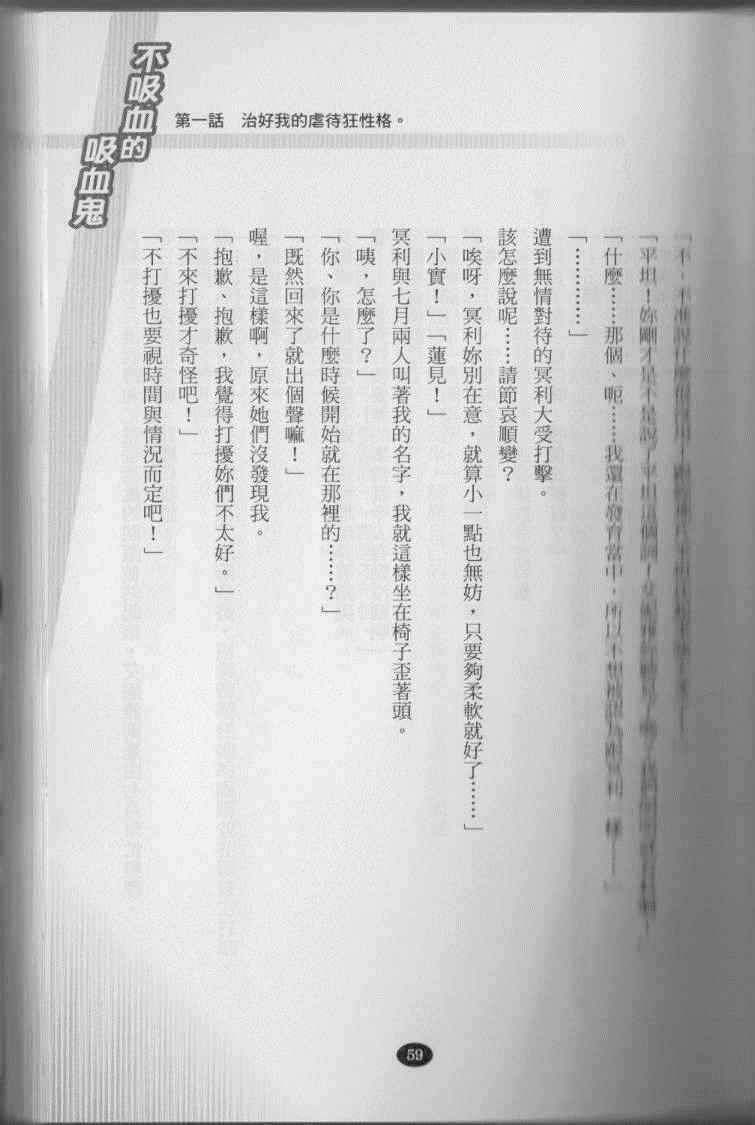 不吸血的
吸血鬼
第一話　治好我的虐待狂性格。
「平坦！妳剛才是不是說了平坦這個詞！
「什麼……那個、呃……我還在發育當中，所以不想被
「…………」
遭到無情對待的冥利大受打擊。
該怎麼說呢……請節哀順變？
「唉呀，冥利妳別在意，就算小一點也無妨，只要夠柔軟就好了……」
「小實！」「蓮見！」
冥利與七月兩人叫著我的名字，我就這樣坐在椅子歪著頭。
「咦，怎麼了？」
「你、你是什麼時候開始就在那裡的……？」
「既然回來了就出個聲嘛！」
喔，是這樣啊，原來她們沒發現我。
「抱歉、抱歉，我覺得打擾妳們不太好。」
「不來打擾才奇怪吧！」
「不打擾也要視時間與情況而定吧！」
59